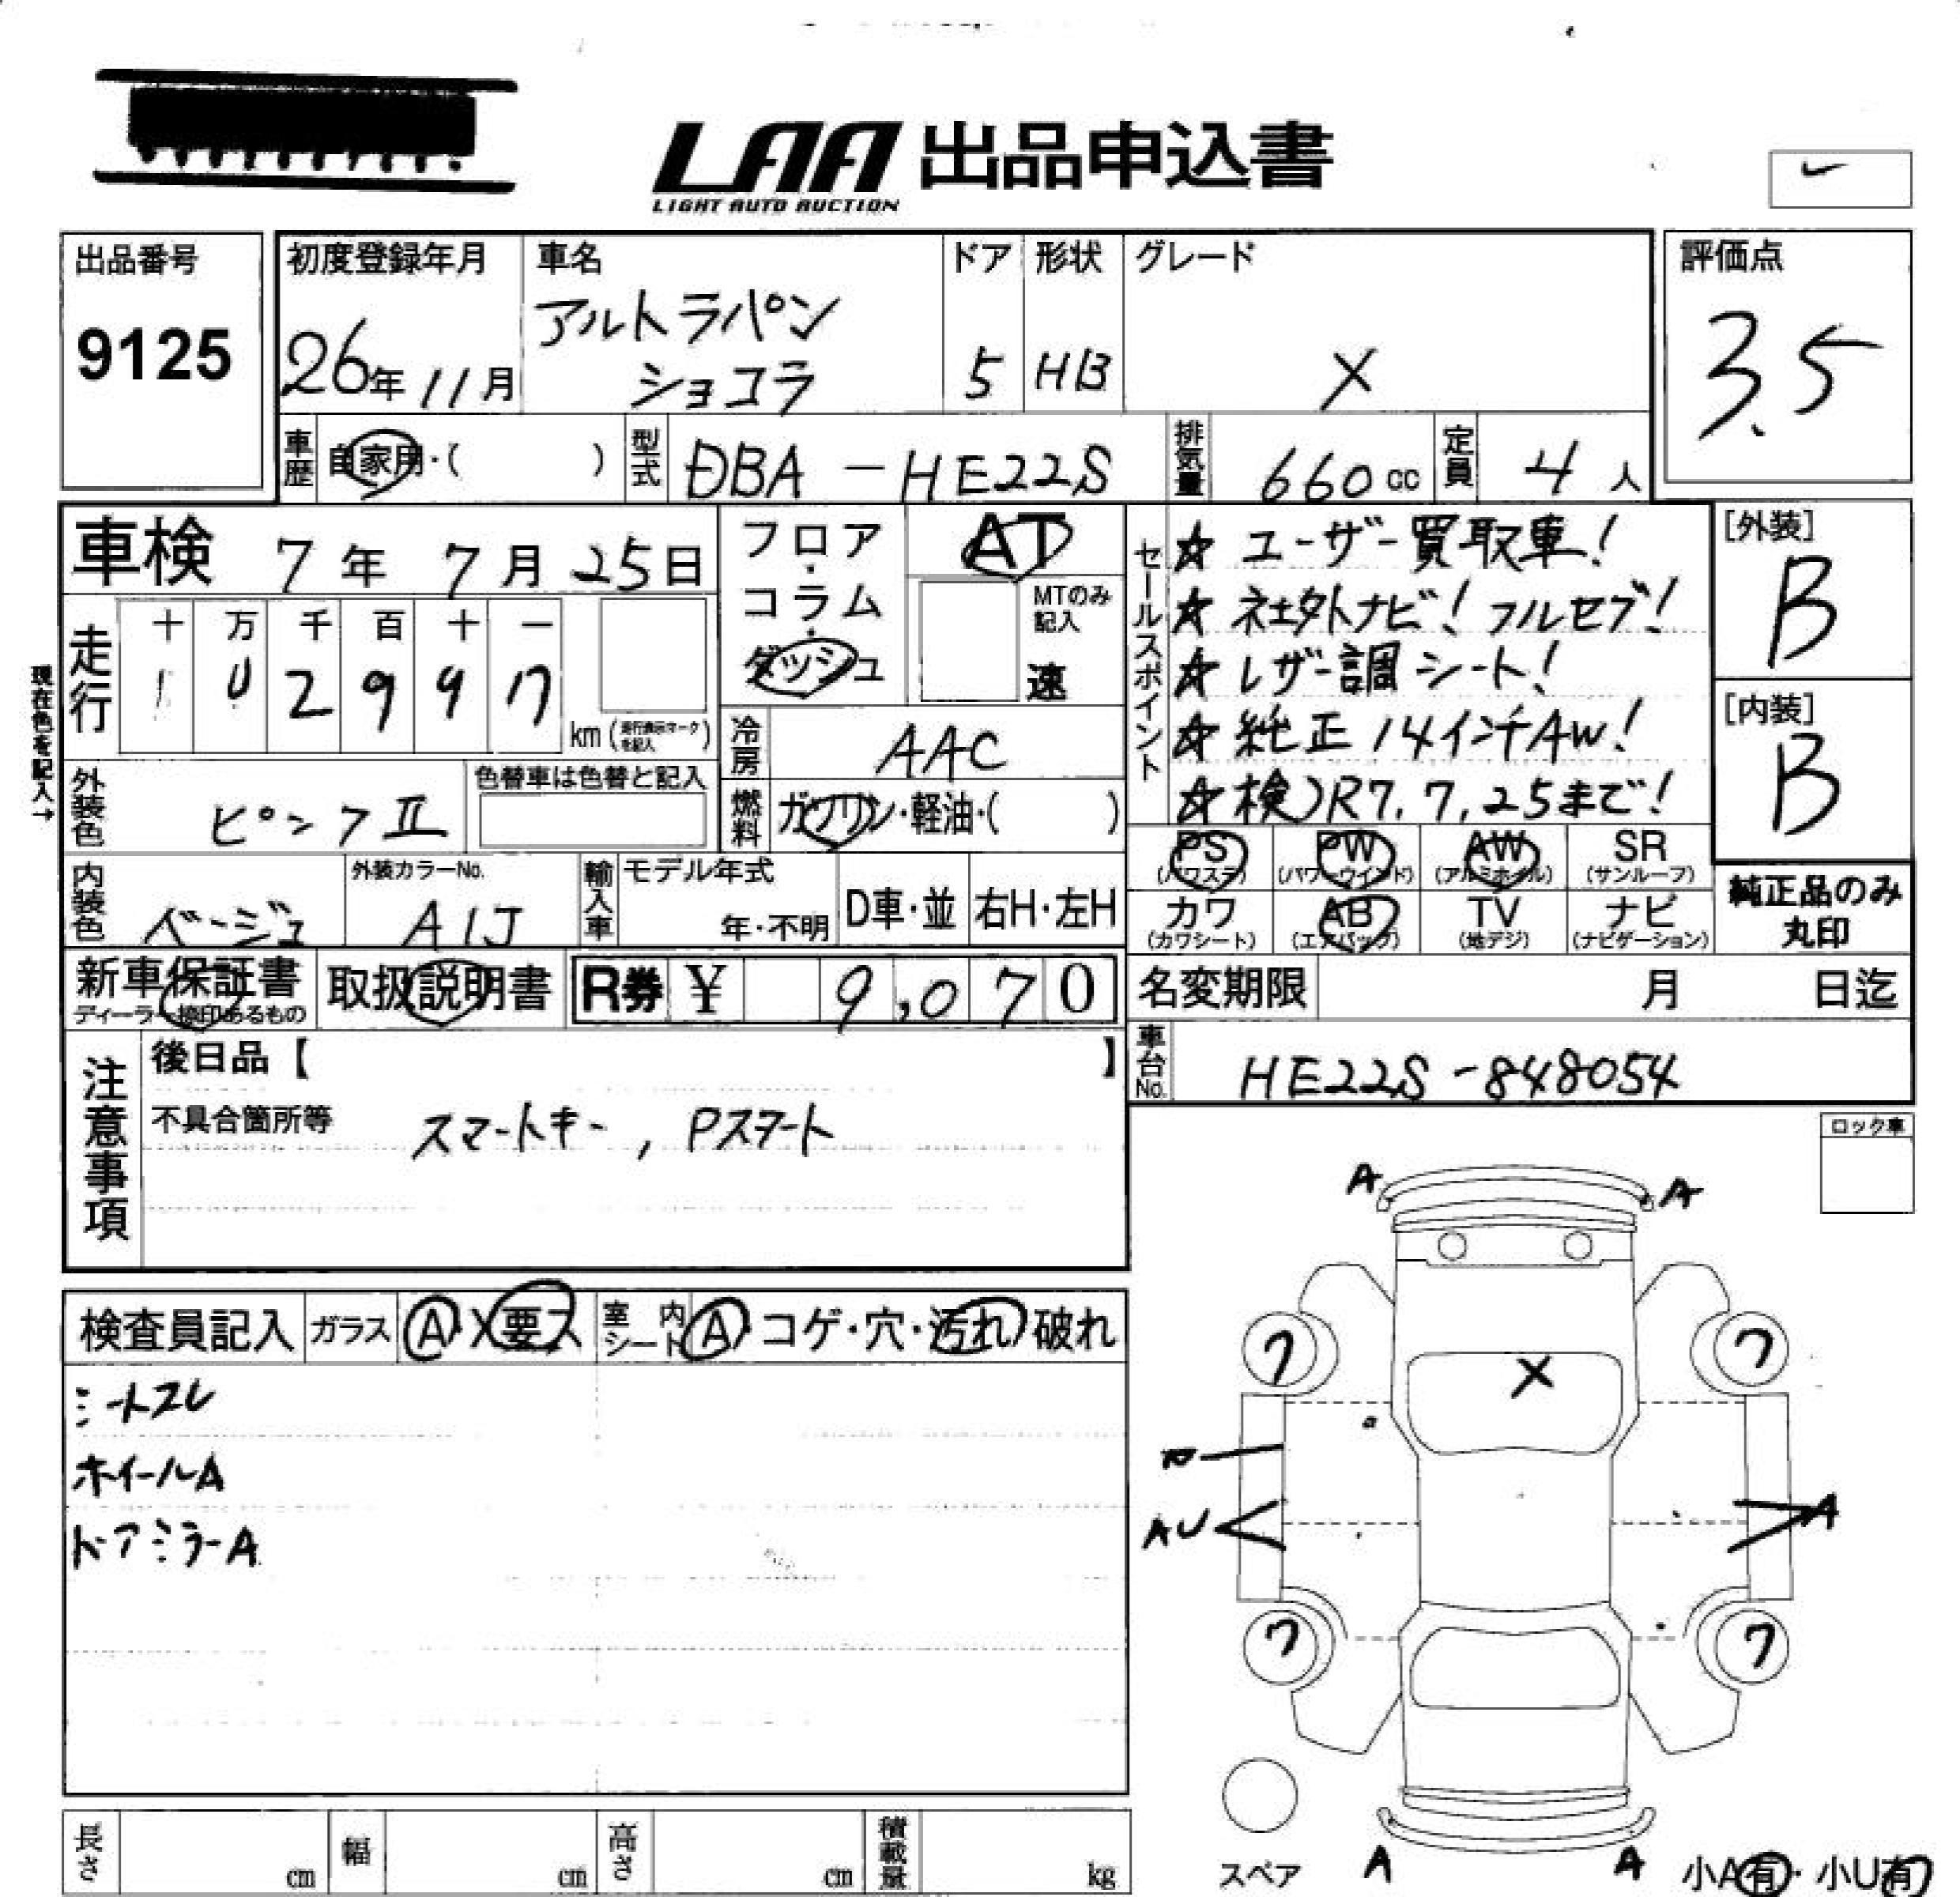 LAA 出品申込書
LIGHT AUTO AUCTION
出品番号
9125
初度登録年月
26年11月
車名
アルトラパン
ショコラ
ドア
5
形状
HB
グレード
X
評価点
3.5
車歴 自家用・( )
型式 DBA-HE22S
排気量 660cc
定員 4人
車検 7年7月25日
走行
十 万 千 百 十 一
2 9 9 7
km(走行表示マークを記入)
現在色を記入→
フロア・コラム・ダッシュ
AT
MTのみ記入
速
冷房 AAC
燃料 ガソリン・軽油・( )
セールスポイント
☆ ユーザー買取車!
☆ 社外ナビ!フルセグ!
☆ レザー調シート!
☆ 純正14インチAW!
☆ 検)R7.7.25まで!
[外装]
B
[内装]
B
外装色 ピンクII
色替車は色替と記入
内装色 ベージュ
外装カラーNo.
A1J
輸入車
モデル年式
年・不明
D車・並
右H・左H
PS
(パワステ)
PW
(パワーウインド)
AW
(アルミホイル)
SR
(サンルーフ)
カワ
(カワシート)
AB
(エアバッグ)
TV
(地デジ)
ナビ
(ナビゲーション)
純正品のみ
丸印
新車保証書
ディーラー捺印あるもの
取扱説明書
R券 ¥ 9,070
名変期限 月 日迄
車台No. HE22S-848054
注意事項
後日品【 】
不具合箇所等 スマートキー, Pスタート
ロック車
検査員記入
ガラス A・X要ス
室内シート A・コゲ・穴・汚れ・破れ
シートスレ
ホイールA
ドアミラーA
A A
7 7
X
AU A
7 7
スペア
A A
小A有・小U有
長さ cm
幅 cm
高さ cm
積載量 kg